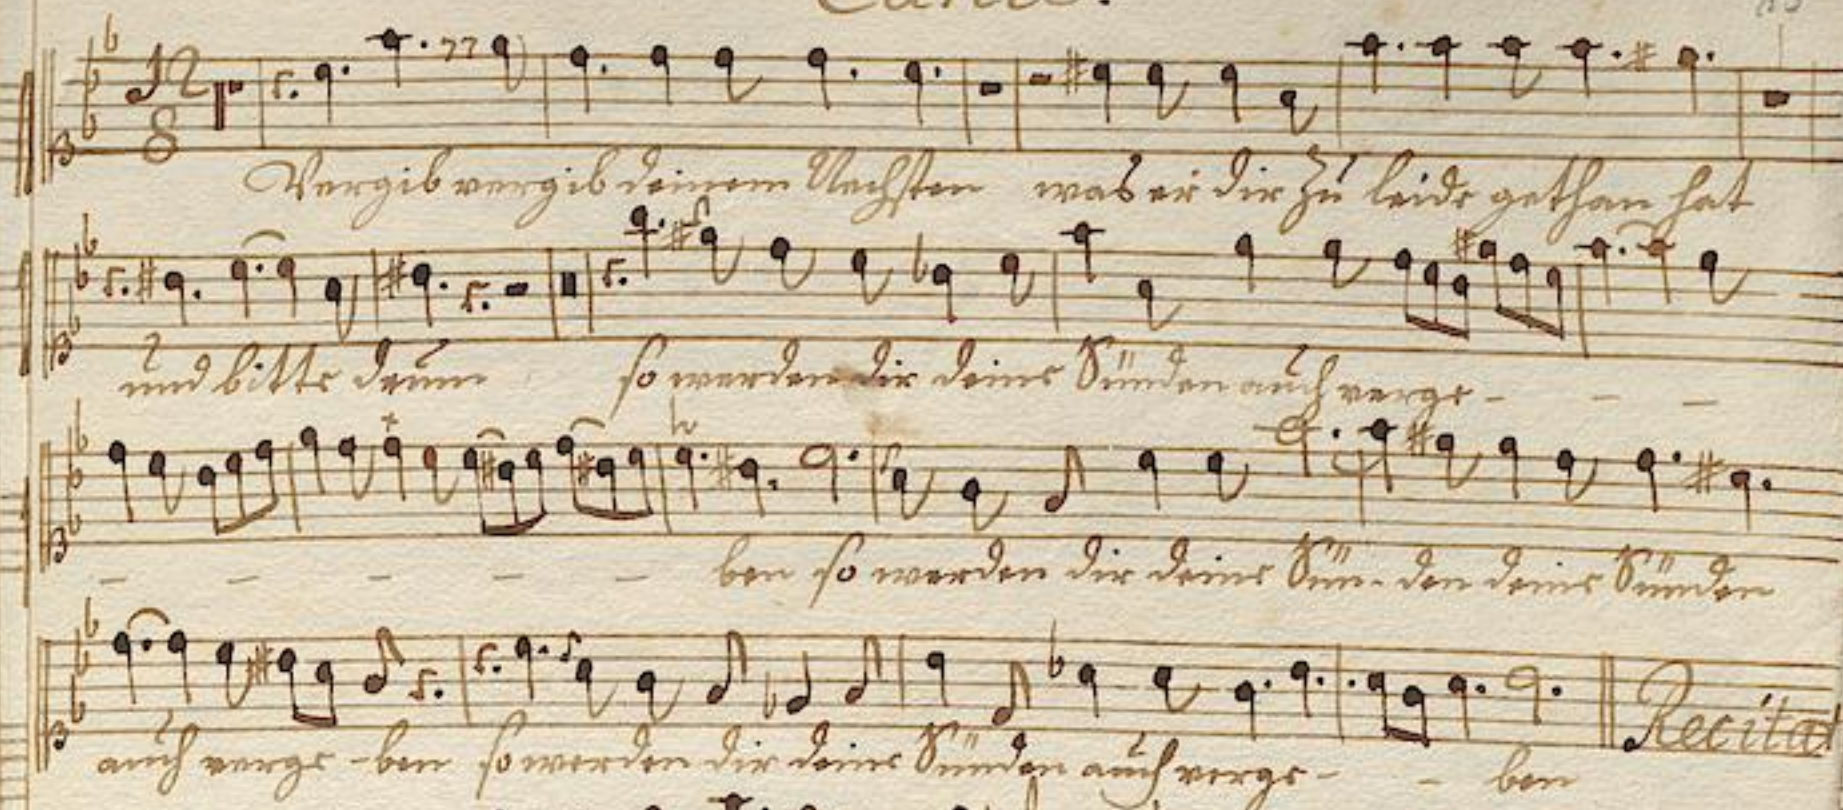 Canto.
12
8
Vergib vergib deinem Nechsten was er dir zu leide gethan hat
und bitte drum so werden dir deine Sünden auch verge - - -
- - - - - ben so werden dir deine Sün - den deine Sünden
auch verge - ben so werden dir deine Sünden auch verge - - ben
Recitat